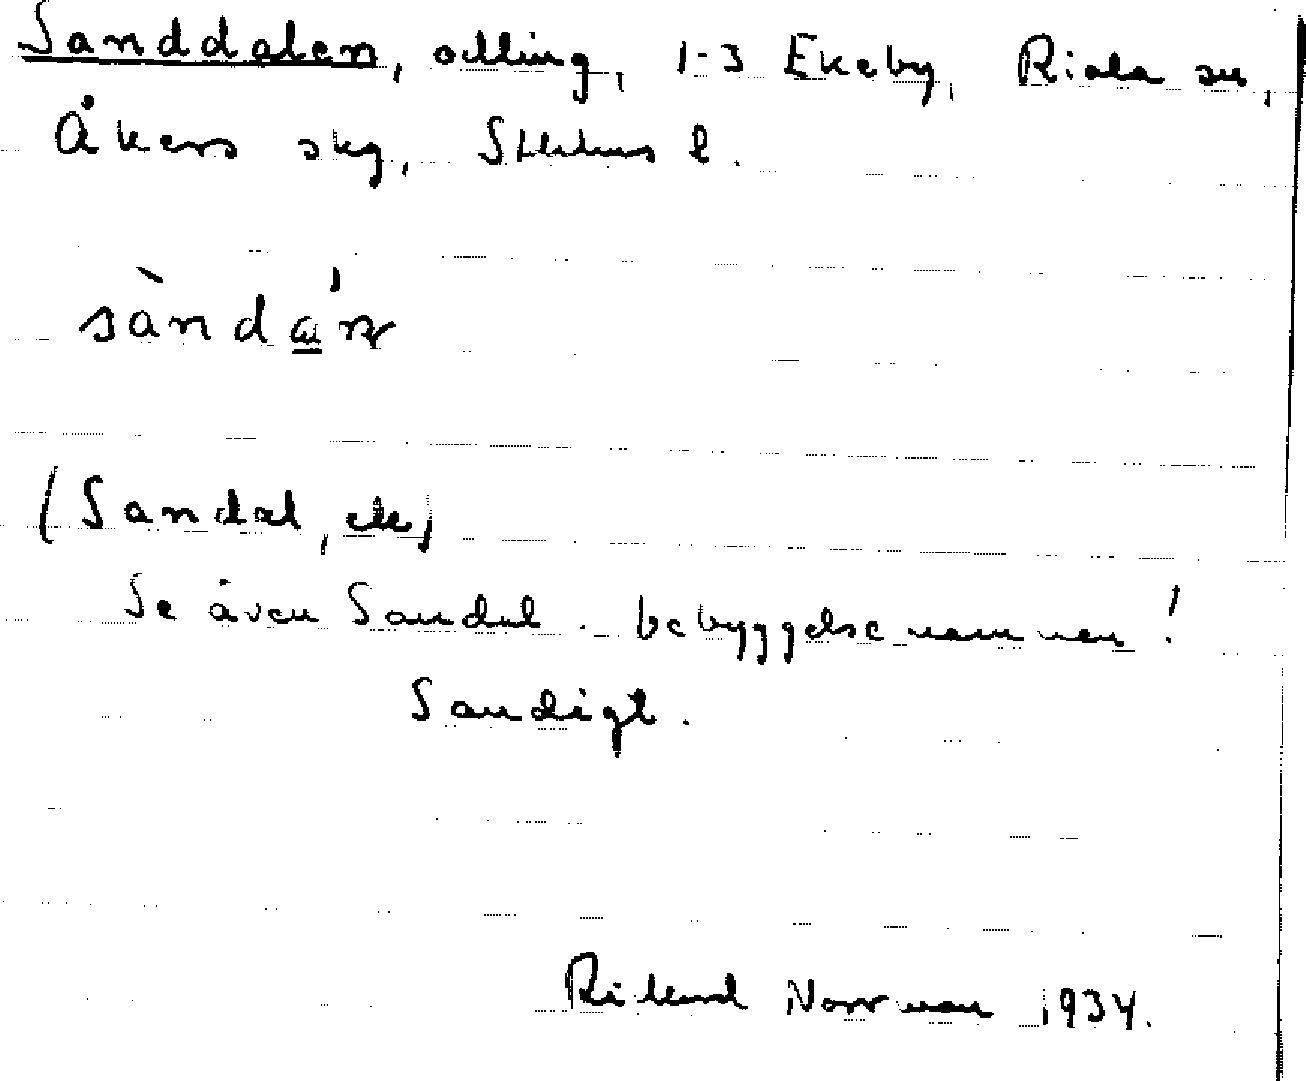 Sanddalen, odling, 1-3 Ekeby, Riala sn,
Åkers skg, Sthlms l.
sànda̲'n
(Sandal, ek)
Se även Sandal. bebyggelsenamnen!
Sandigt.
Rikard Norrman 1934.